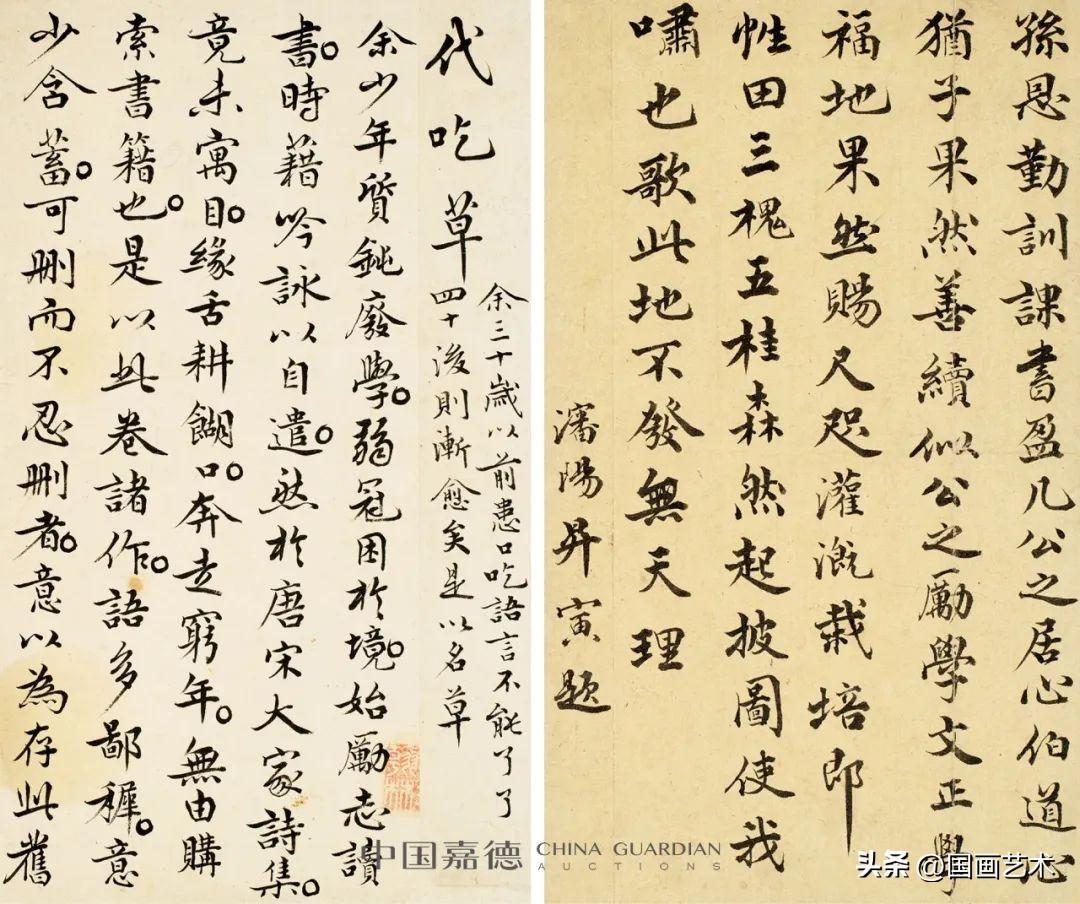 孫恩勤訓課書盈几公之居心伯道心
猶子果然善續似公之勵學文正學
福地果然賜尺咫灌溉栽培即
性田三槐五桂森然起披圖使我
嘯也歌此地不發無天理
瀋陽昇寅題
代吃草
余三十歲以前患口吃語言不能了了
四十後則漸愈矣是以名草
余少年質鈍廢學。弱冠困於境。始勵志讀
書。時藉吟詠以自遣。然於唐宋大家詩集。
竟未寓目。緣舌耕餬口。奔走窮年。無由購
索書籍也。是以此卷諸作。語多鄙穉。意
少含蓄。可刪而不忍刪者。意以為存此舊
中国嘉德 CHINA GUARDIAN
AUCTIONS
头条 @国画艺术